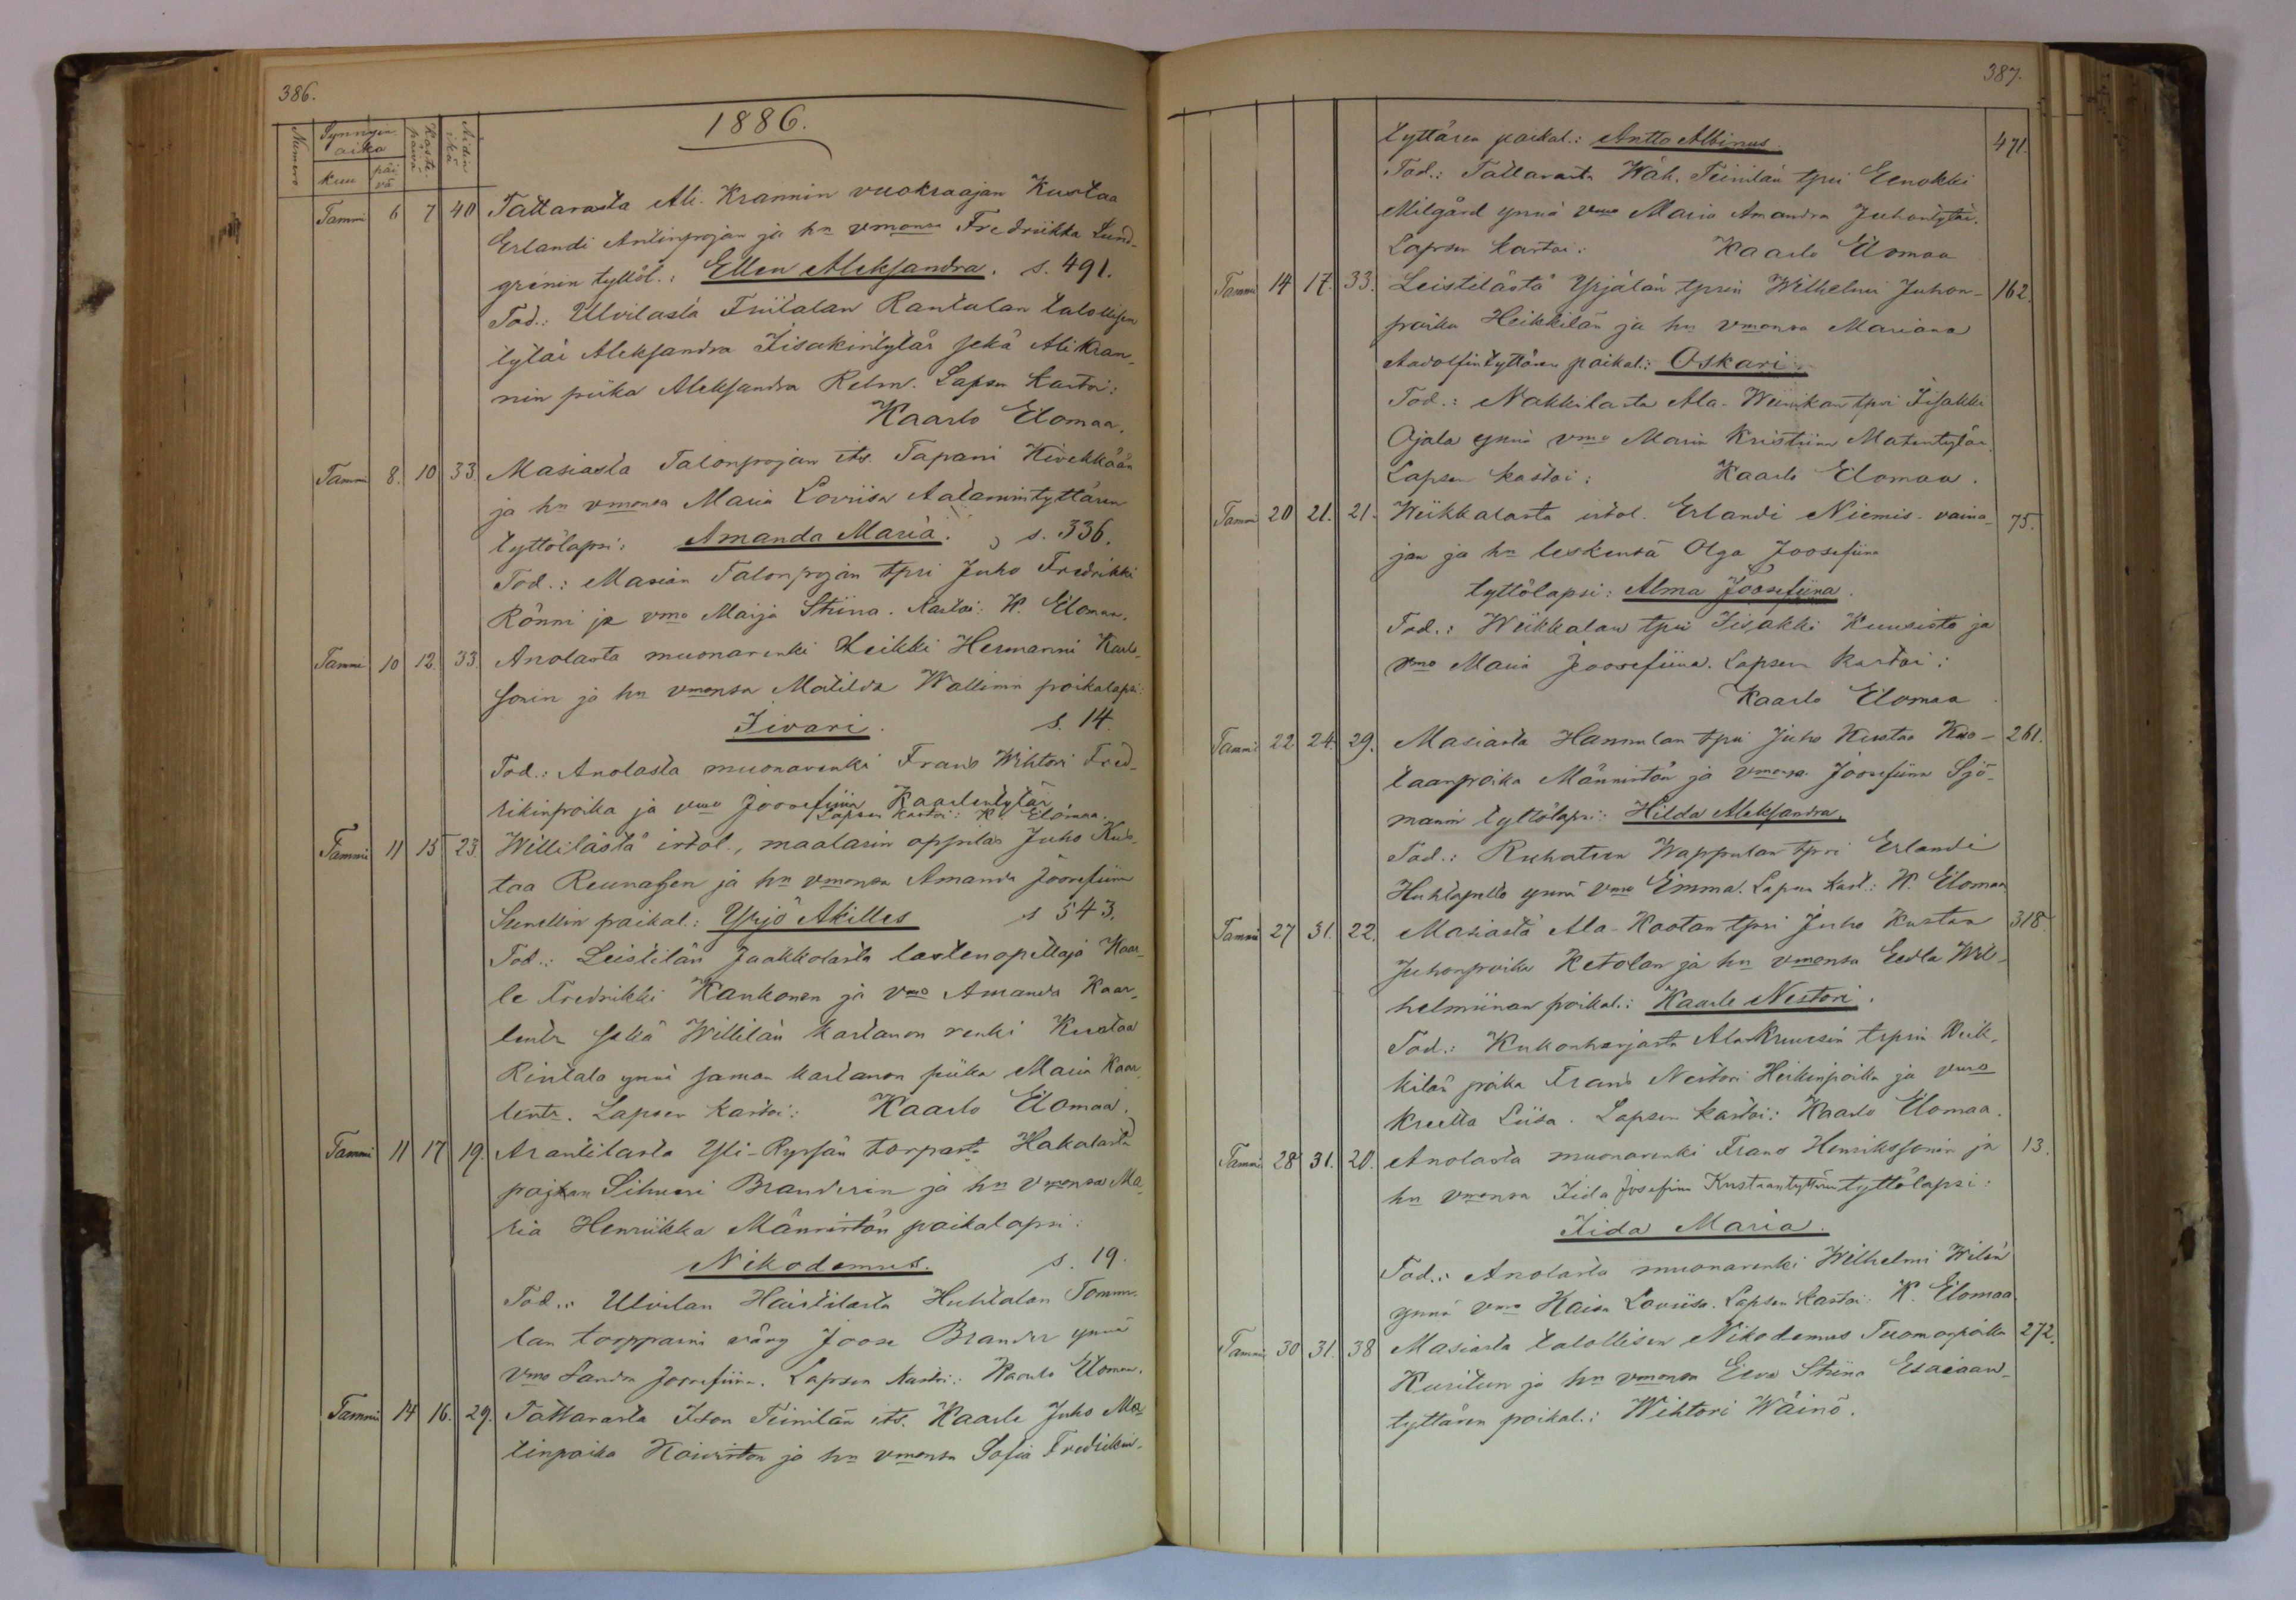 386.
1886.
Numero
Synnyin
aika
kuu
päi
vä
Kaste
päivä
Äidin
ikä
Tammi 6 7 40 Tattarasta Ali-Krannin vuokraajan Kustaa
Erlandi Antinpojan ja hn vmonsa Fredriikka Lund-
grénin tyttöl.: Ellen Aleksandra. s. 491.
Tod.: Ulvilasta Friitalan Rantalan talollisen
tytär Aleksandra Iisakintytär sekä Ali Kran-
nin piika Aleksandra Relm. Lapsen kastoi:
Kaarlo Elomaa.
Tammi 8. 10 33 Masiasta Talonpojan its. Tapani Kivekkään
ja hn vmonsa Maria Loviisa Aatamintyttären
tyttölapsi: Amanda Maria. s. 336.
Tod.: Masian Talonpojan tpri Juho Fredrikki
Rönni ja vmo Maija Stiina. Kastoi: K. Elomaa.
Tammi 10 12 33 Anolasta muonarenki Heikki Hermanni Karls-
sonin ja hn vmonsa Matilda Wallinin poikalapsi:
Iivari. s. 14.
Tod.: Anolasta muonarenki Frans Wihtori Fred-
rikinpoika ja vmo Joosefiina Kaarlentytär
Lapsen kastoi: K. Elomaa.
Tammi 11 15 23. Willilästä irtol., maalarin oppilas Juho Kus-
taa Reunasen ja hn vmonsa Amanda Joosefiina
Sunellin poikal.: Yrjö Akilles s 543.
Tod.: Leistilän Jaakkolasta lastenopettaja Kaar-
le Fredrikki Kankonen ja vmo Amanda Kaar-
lentr sekä Willilän kartanon renki Kustaa
Rintala ynnä saman kartanon piika Maria Kaar-
lentr. Lapsen kastoi: Kaarlo Elomaa.
Tammi 11 17 19. Arantilasta Yli-Ryssän torpasta Hakalasta
pajkan Silmeri Branderin ja hn vmonsa Ma-
ria Henriikka Männistön poikalapsi:
Nikodemus. s. 19.
Tod.: Ulvilan Haistilasta Huhtalan Tommi-
lan torpparin väwy Joose Brander ynnä
vmo Sandra Joosefiina. Lapsen kastoi: Kaarlo Elomaa.
Tammi 14 16. 29. Tattarasta Iton Tiinilän its. Kaarle Juho Ma-
tinpoika Koiviston ja hn vmonsa Sofia Fredrikin-
387.
tyttären poikal.: Antto Albinus. 491.
Tod.: Tattarasta Wäh. Tiinilän tpri Eenokki
Milgård ynnä vmo Maria Amandra Juhontytär.
Lapsen kastoi: Kaarlo Elomaa
Tammi 14 17. 33. Leistilästä Yrjälän tprin Wilhelmi Juhon- 162.
poika Heikkilän ja hn vmonsa Mariana
Aadolfintyttären poikal.: Oskari
Tod.: Nakkilasta Ala-Weinikan tpri Iisakki
Ojala ynnä vmo Maria Kristiina Matintytär
Lapsen kastoi: Kaarlo Elomaa.
Tammi 20 21. 21. Wiikkalasta irtol. Erlandi Niemis-vaina- 75.
jan ja hn leskensä Olga Joosefiina
tyttölapsi: Alma Joosefiina.
Tod.: Wiikkalan tpri Iisakki Kuusisto ja
vmo Maria Joosefiina. Lapsen kastoi:
Kaarlo Elomaa
Tammi 22 24. 29. Masiasta Hannulan tpri Juho Kustaa Kus- 261.
taanpoika Männistön ja vmonsa Joosefiina Sjö-
manin tyttölapsi: Hilda Aleksandra.
Tod.: Ruhatun Wappulan tpri Erlandi
Huhtapelto ynnä vmo Emma. Lapsen kast.: K. Elomaa
Tammi 27 31. 22. Masiasta Ala-Kaotan tpri Juho Kustaa 318.
Juhonpoika Ketolan ja hn vmonsa Eedla Wil-
helmiinan poikal.: Kaarle Nestori.
Tod.: Kukonharjasta Ala-Kruusin tsprin Heik-
kilän poika Frans Nestori Heikinpoika ja vmo
Kreetta Liisa. Lapsen kastoi: Kaarlo Elomaa.
Tammi 28 31. 20. Anolasta muonarenki Frans Henrikssonin ja 13.
hn vmonsa Iida Josefiina Kustaantyttären tyttölapsi:
Iida Maria.
Tod.: Anolasta muonarenki Wilhelmi Wilen
ynnä vmo Kaisa Loviisa. Lapsen kastoi: K. Elomaa.
Tammi 30 31. 38 Masiasta talollisen Nikodemus Tuomaanpoika 272.
Kuritun ja hn vmonsa Eeva Stiina Esaiaan-
tyttären poikal.: Wihtori Wäinö.